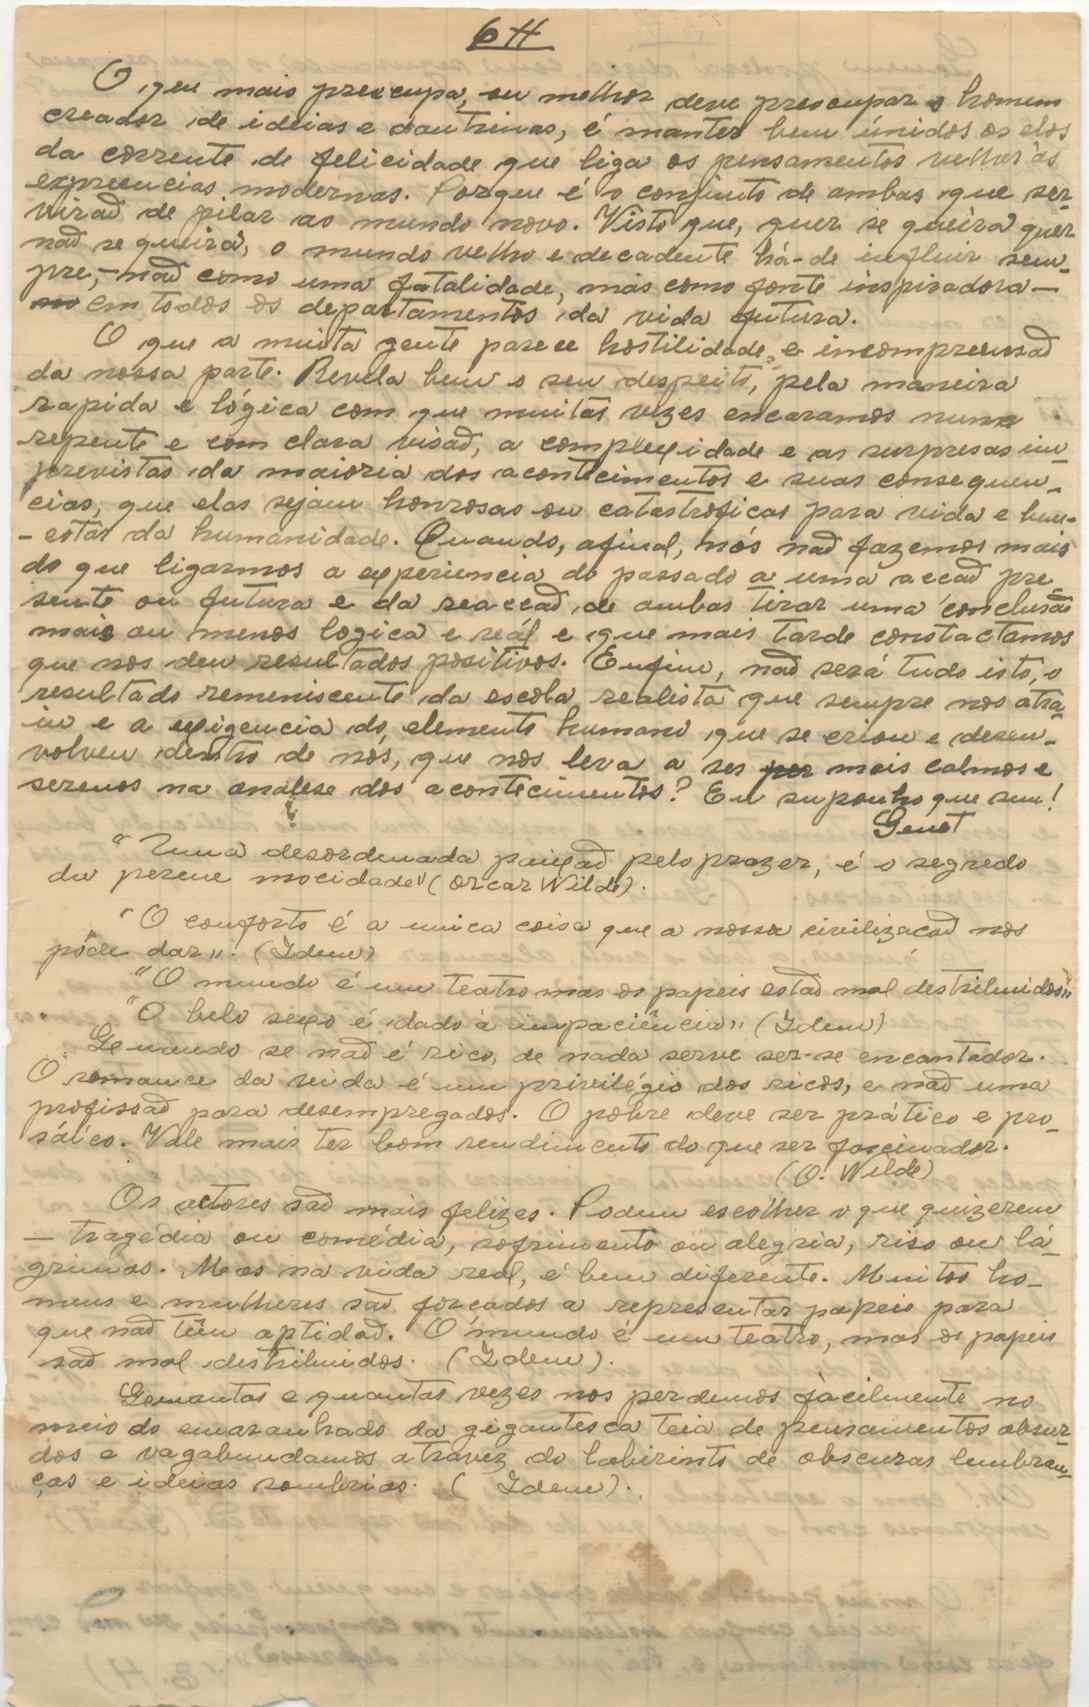 6H
O que mais preocupa, ou melhor deve preocupar o homem
creador de ideias e doutrinas, é manter bem únidos os elos
da corrente de felicidade que liga os pensamentos velhos ás
expreencias modernas. Porque é o conjunto de ambas que ser-
viraõ de pilar ao mundo novo. Visto que, quer se queira quer
naõ se queira, o mundo velho e decadente há-de influir sem-
pre, — naõ como uma fatalidade, mas como fonte inspiradora —
em todos os departamentos da vida futura.
O que a muita gente parece hostilidade, e incompreensaõ
da nossa parte. Revela bem o seu despeito, pela maneira
rapida e lógica com que muitas vezes encaramos num
repente e com clara visaõ, a complexidade e as surpresas im-
previstas da maioria dos acontecimentos e suas consequen-
cias, que elas sejam honrosas ou catastroficas para vida e bem-
-estar da humanidade. Quando, afinal, nós naõ fazemos mais
do que ligarmos a experiencia do passado a uma acçaõ pre-
sente ou futura e da reacçaõ de ambas tirar uma conclusaõ
mais ou menos logica e reál e que mais tarde constactamos
que nos deu resultados positivos. Enfim, naõ será tudo isto, o
resultado remeniscente da escola realista que sempre nos atra-
iu e a exigencia do elemento humano que se criou e desen-
volveu dentro de nós, que nos leva a ser mais calmos e
serenos na analese dos acontecimentos? Eu suponho que sim!
Genet
"Uma desordenada paixaõ pelo prazer, é o segredo
da perene mocidade" (Oscar Wilde).
"O conforto é a unica coisa que a nossa civilizacaõ nos
póde dar". (Idem)
"O mundo é um teatro mas os papeis estaõ mal destribuidos"
"O belo sexo é dado à impaciência" (Idem)
Quando se naõ é rico, de nada serve ser-se encantador.
O romance da vida é um privilégio dos ricos, e naõ uma
profissaõ para desempregados. O pobre deve ser prático e pro-
sáico. Vale mais ter bom rendimento do que ser fascinador.
(O. Wilde)
Os actores saõ mais felizes. Podem escolher o que quizerem
— tragédia ou comédia, sofrimento ou alegria, riso ou lá-
grimas. Mas na vida real, é bem diferente. Muitos ho-
mens e mulheres saõ forçados a representar papeis para
que naõ têm aptidaõ. O mundo é um teatro, mas os papeis
saõ mal destribuidos. (Idem).
Quantas e quantas vezes nos perdemos fácilmente no
meio do emaranhado da gigantesca teia de pensamentos absur-
dos e vagabundamos a travez do labirinto de obscuras lembran-
ças e ideias sombrias. (Idem).